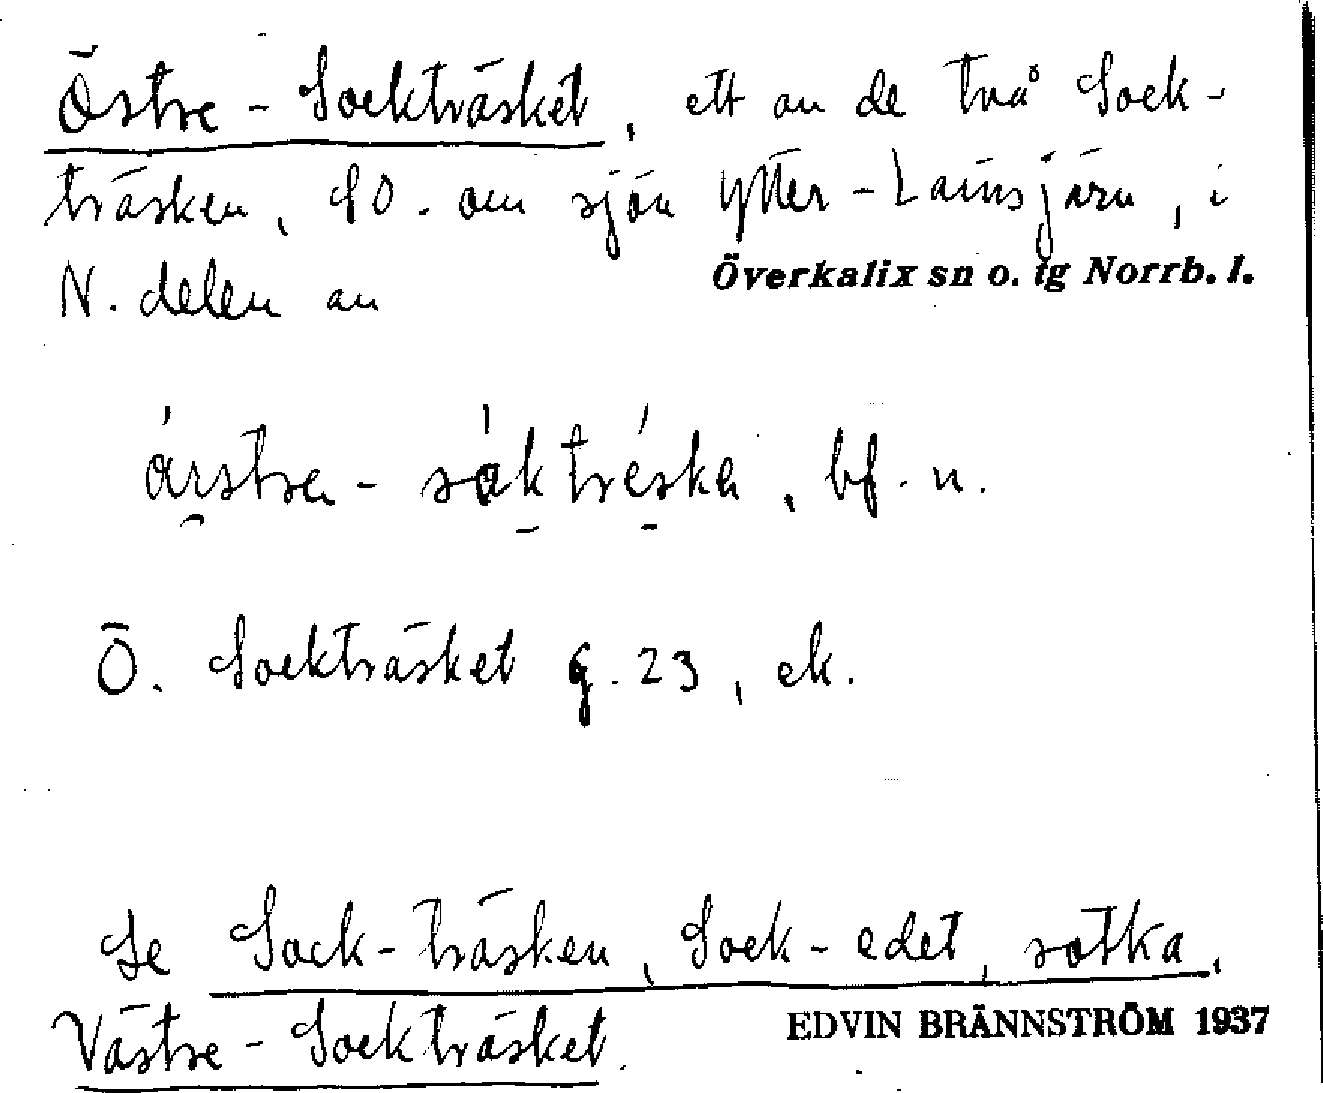 Östre-Sockträsket, ett av de två Sock-
träsken, SO. om sjön Ytter-Lainsjärv, i
N. delen av Överkalix sn o. tg Norrb. l.
árstra - såktréska, bf. n.
Ö. Sockträsket g. 23, ek.
Se Sock-träsken, Sock-edet, sotka,
Västre-Sockträsket.
EDVIN BRÄNNSTRÖM 1937